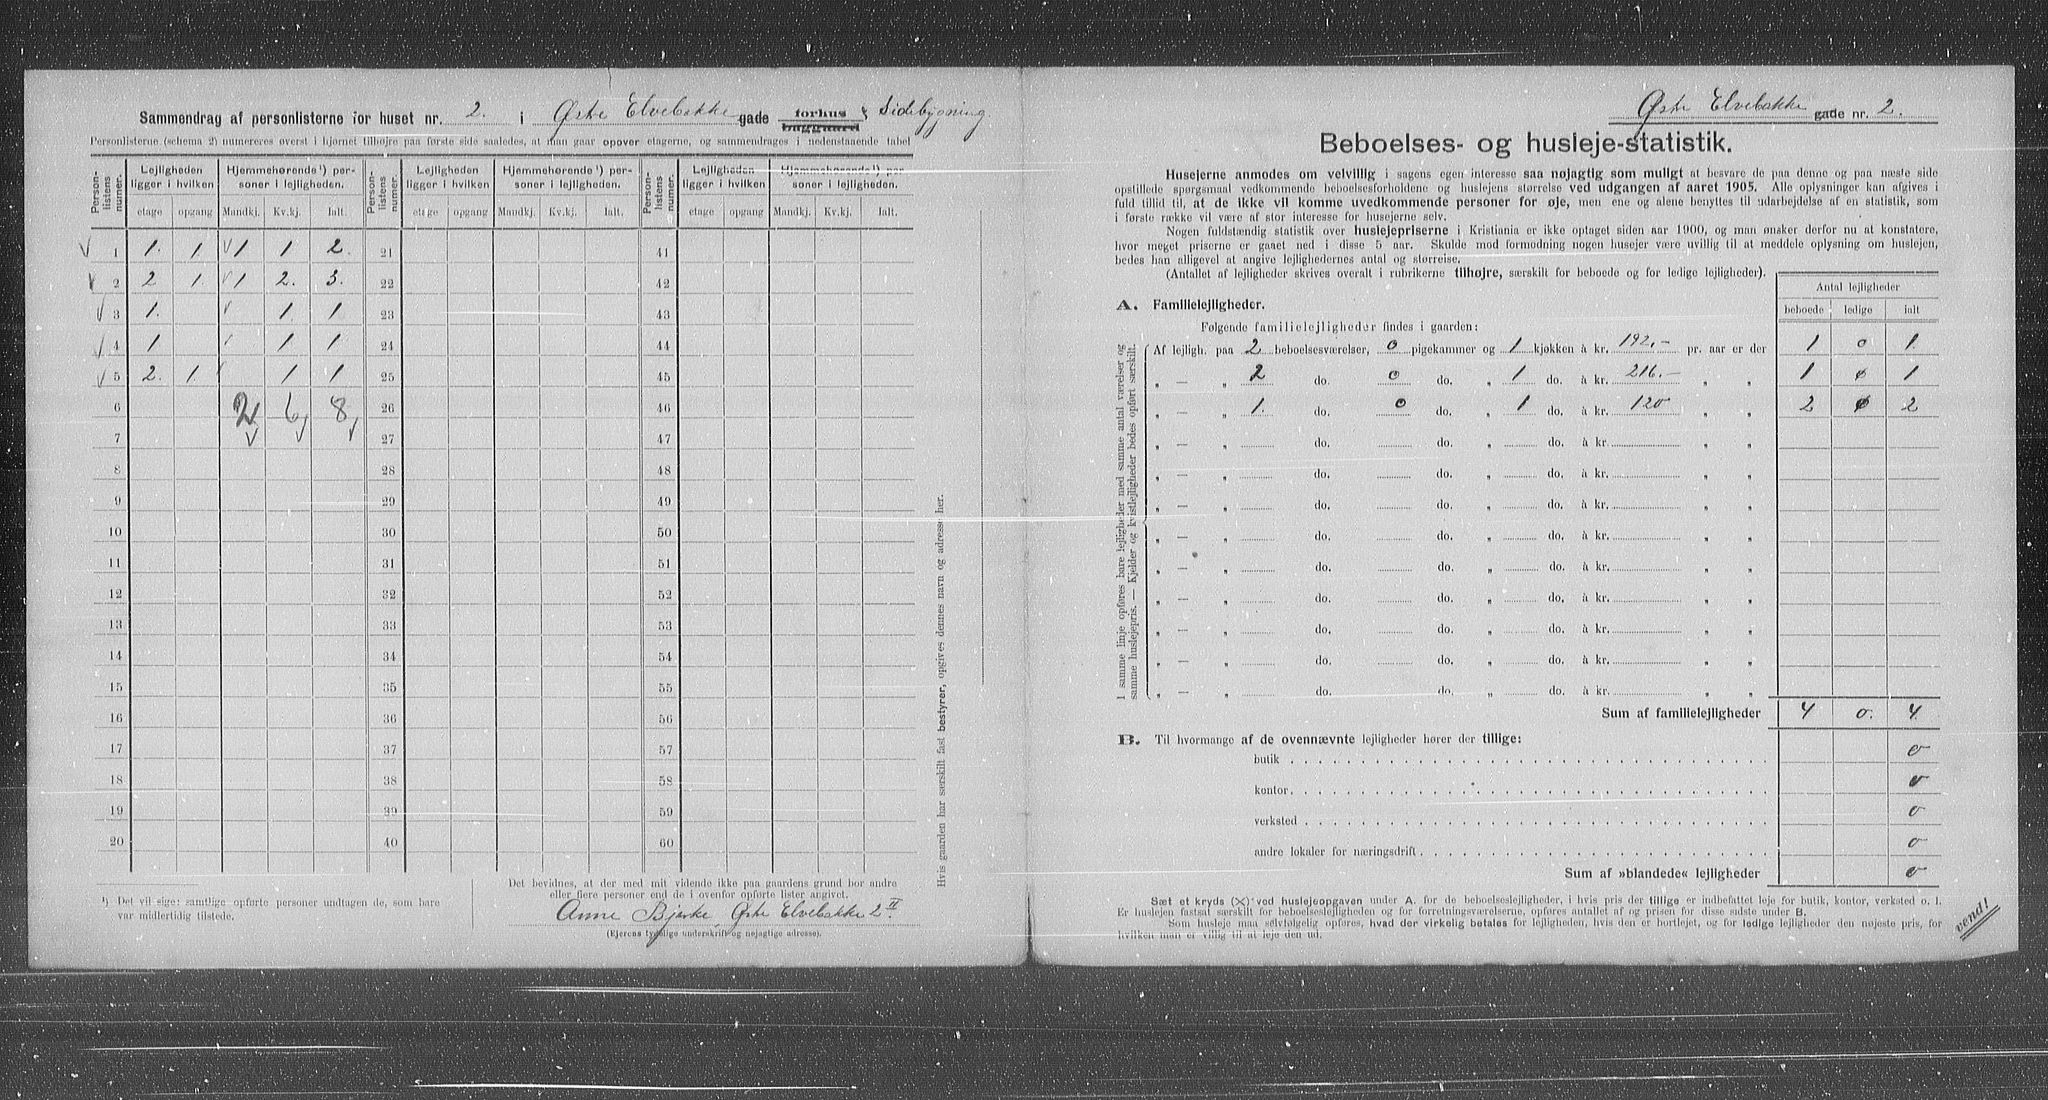 Sammendrag af personlisterne for huset nr. 2. i Østre Elvebakke gade forhus & Sidebygning
baggaard
Personlisterne (schema 2) numereres øverst i hjørnet tilhøjre paa første side saaledes, at man gaar opover etagerne, og sammendrages i nedenstaaende tabel
Person-listens nummer. Lejligheden ligger i hvilken Hjemmehørende¹) personer i lejligheden. Person-listens nummer. Lejligheden ligger i hvilken Hjemmehørende¹) personer i lejligheden. Person-listens nummer. Lejligheden ligger i hvilken Hjemmehørende¹) personer i lejligheden.
etage opgang Mandkj. Kv.kj. Ialt. etage opgang Mandkj. Kv.kj. Ialt. etage opgang Mandkj. Kv.kj. Ialt.
1 1. 1 1 1 2. 21 41
2 2 1. 1 2. 3. 22 42
3 1. 1. 1 23 43
4 1 1 1 24 44
5 2. 1. 1 1 25 45
6 2 6 8 26 46
7 27 47
8 28 48
9 29 49
10 30 50
11 31 51
12 32 52
13 33 53
14 34 54
15 35 55
16 36 56
17 37 57
18 38 58
19 39 59
20 40 60
¹) Det vil sige: samtlige opførte personer undtagen de, som bare
var midlertidig tilstede.
Det bevidnes, at der med mit vidende ikke paa gaardens grund bor andre
eller flere personer end de i ovenfor opførte lister angivet.
Anne Bjerke, Østre Elvebakke 2 II
(Ejerens tydelige underskrift og nøjagtige adresse).
Hvis gaarden har særskilt fast bestyrer, opgives dennes navn og adresse her.
Østre Elvebakke gade nr. 2.
Beboelses- og husleje-statistik.
Husejerne anmodes om velvillig i sagens egen interesse saa nøjagtig som muligt at besvare de paa denne og paa næste side
opstillede spørgsmaal vedkommende beboelsesforholdene og huslejens størrelse ved udgangen af aaret 1905. Alle oplysninger kan afgives i
fuld tillid til, at de ikke vil komme uvedkommende personer for øje, men ene og alene benyttes til udarbejdelse af en statistik, som
i første række vil være af stor interesse for husejerne selv.
Nogen fuldstændig statistik over huslejepriserne i Kristiania er ikke optaget siden aar 1900, og man ønsker derfor nu at konstatere,
hvor meget priserne er gaaet ned i disse 5 aar. Skulde mod formodning nogen husejer være uvillig til at meddele oplysning om huslejen,
bedes han alligevel at angive lejlighedernes antal og størrelse.
(Antallet af lejligheder skrives overalt i rubrikerne tilhøjre, særskilt for beboede og for ledige lejligheder).
Antal lejligheder
beboede ledige ialt
A. Familielejligheder.
Følgende familielejligheder findes i gaarden:
Af lejligh. paa 2 beboelsesværelser, 0 pigekammer og 1 kjøkken à kr. 192,- pr. aar er der 1 0 1.
„ — „ 2 do. 0 do. „ 1 do. à kr. 216.- „ „ 1 0 1
„ — „ 1. do. 0 do. „ 1 do. à kr. 120 „ „ 2 0 2
„ — „ do. do. „ do. à kr. „ „
„ — „ do. do. „ do. à kr. „ „
„ — „ do. do. „ do. à kr. „ „
„ — „ do. do. „ do. à kr. „ „
„ — „ do. do. „ do. à kr. „ „
„ — „ do. do. „ do. à kr. „ „
„ — „ do. do. „ do. à kr. „ „
„ — „ do. do. „ do. à kr. „ „
„ — „ do. do. „ do. à kr. „ „
I samme linje opføres bare lejligheder med samme antal værelser og
samme huslejepris. — Kjelder og kvistlejligheder bedes opført særskilt.
Sum af familielejligheder 4 0. 4.
B. Til hvormange af de ovennævnte lejligheder hører der tillige:
butik 0
kontor 0
verksted 0
andre lokaler for næringsdrift 0
Sum af »blandede« lejligheder 0
Sæt et kryds (X) ved huslejeopgaven under A. for de beboelseslejligheder, i hvis pris der tillige er indbefattet leje for butik, kontor, verksted o. l.
Er huslejen fastsat særskilt for beboelseslejligheden og for forretningsværelserne, opføres antallet af og prisen for disse sidste under B.
Som husleje maa selvfølgelig opføres, hvad der virkelig betales for lejligheden, hvis den er bortlejet, og for ledige lejligheder den nøjeste pris, for
hvilken man er villig til at leje den ud.
vend!